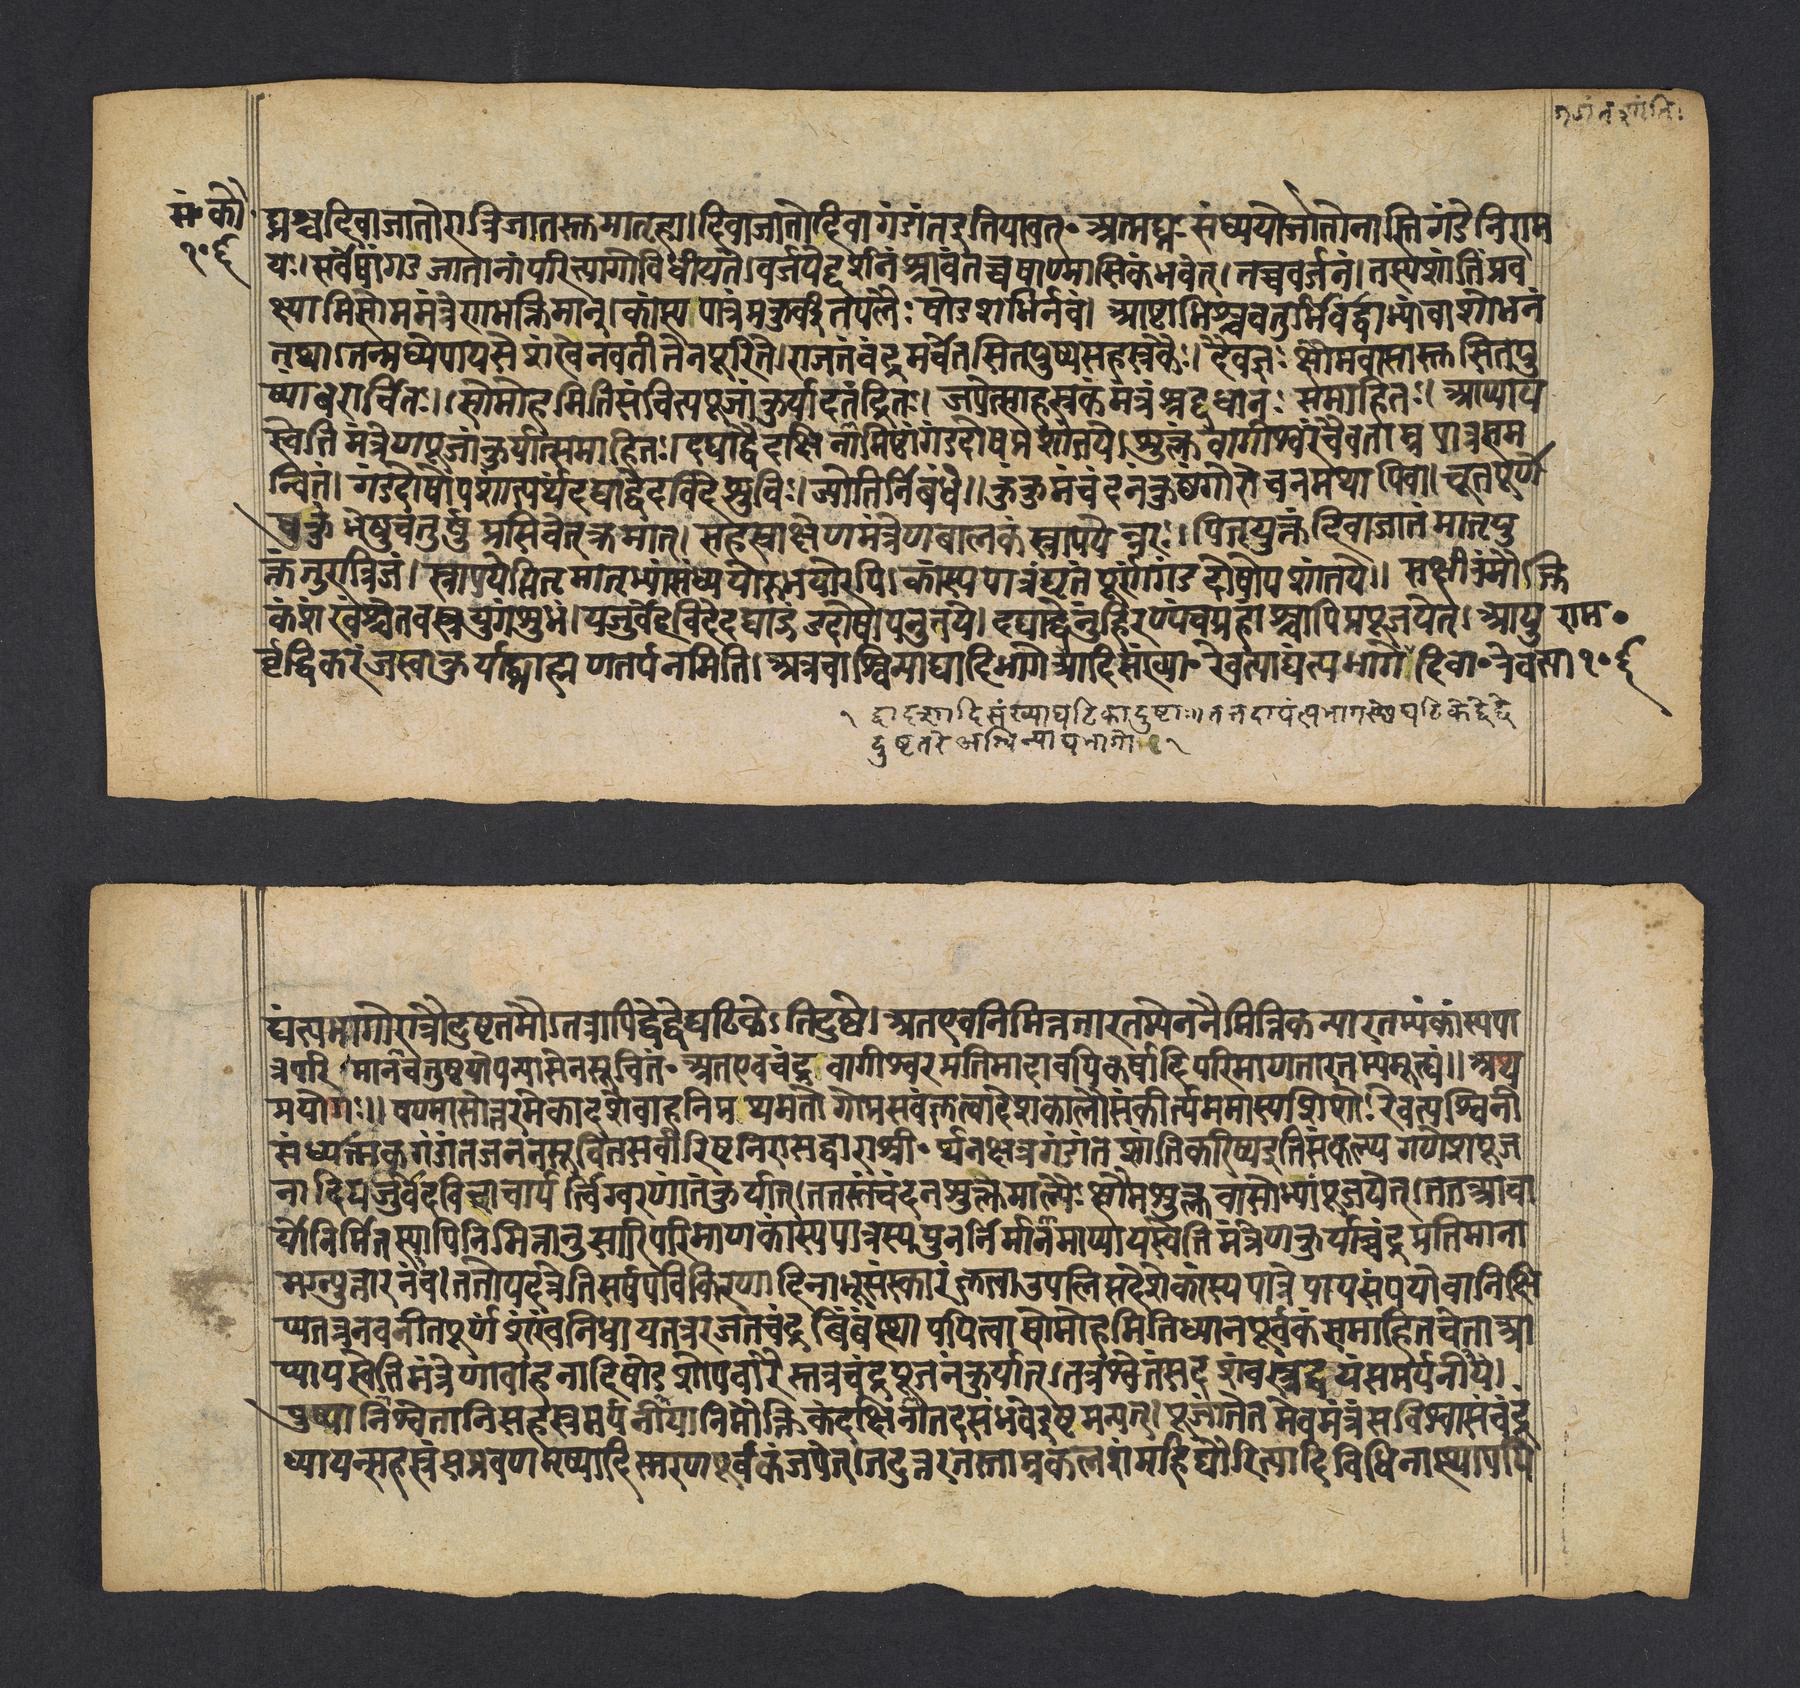 गंडांतशांतिः
सं॰कौ॰
१०६
घ्नश्चदिवाजातोरात्रिजातस्तुमातृहा।दिवाजातोदिवागंडांतइतियावत्॰आत्मघ्नःसंध्ययोर्जातोनास्तिगंडेनिराम
यः।सर्वेषांगंडजातानांपरित्यागोविधीयते।वर्जयेद्दर्शनंश्रावंतच्चषाण्मासिकंभवेत्।तच्चवर्जनं।तस्यशांतिंप्रव
क्ष्यामिसोममंत्रेणभक्तिमान्।कांस्यपात्रंप्रकुर्वीतपलैःषोडशभिर्नवं।अष्टाभिश्चचतुर्भिर्वाद्वाभ्यांवाशोभनं
तथा।तन्मध्येपायसंशंखेनवनीतेनपूरिते।राजतंचंद्रमर्चेतसितपुष्पसहस्रकैः।दैवज्ञःक्षौमवासास्तुसितपु
ष्पांबरार्चितः।सोमोहमितिसंचिंत्यपूजांकुर्यादतंद्रितः।जपेत्साहस्रकंमंत्रंश्रद्दधानःसमाहितः।आप्याय
स्वेतिमंत्रेणपूजांकुर्यात्समाहितः।दद्याद्वैदक्षिनामिष्टांगंडदोषप्रशांतये।शुक्लंवागीश्वरंचैवताम्रपात्रसम
न्वितं।गंडदोषोपशांत्यर्थंदद्याद्वेदविदेशुचिः।ज्योतिर्निबंधे॥कुंकुमंचंदनंकुष्ठंगोरोचनमथापिवा।घृतपूर्णे
षुकुंभेषुचतुर्षुप्रसिचेत्क्रमात्।सहस्राक्षेणमंत्रेणबालकंस्नापयेन्नरः।पितृयुक्तंदिवाजातंमातृयु
क्तंतुरात्रिजं।स्नापयेत्पितृमातृभ्यांसंध्ययोरुभयोरपि।कांस्यपात्रंघृतंपूर्णंगंडदोषोपशांतये॥सक्षीरंमौक्ति
कंशंखंश्वेतवस्त्रयुगंशुभं।यजुर्वेदविदेदद्याद्गंडदोषापनुत्तये।दद्याद्धेनुंहिरण्यंचग्रहांश्चापिप्रपूजयेत्।आयु
र्वृद्धिकरंजप्त्वाकुर्याद्ब्राह्मणतर्पनमिति।अत्रचाश्विन्याद्यादिभागेआदिसंख्या॰रेवत्याद्यंत्यभागेदिवा॰रेवत्या
राम॰
१०६
द्वादशादिसंख्याघटिकादुष्टाः॥तत्रदाद्यंत्यभागस्थेघटिकेद्वेद्वे
दुष्टतरेअश्विन्याद्यभागौ १
द्यंत्यभागोरात्रौदुष्टतमौ।तत्रापिद्वेद्वेघटिकेऽतिदुष्टे।अतएवनिमित्ततारतम्येननैमित्तिकतारतम्यंकांस्यपा
त्रपरिमानचतुष्टयोपन्यासेनसूचितं॰अतएवचंद्रवागीश्वरप्रतिमादावपिकर्षादिपरिमाणतारतम्यमूह्यं॥अथ
प्रयोगः॥षण्मासोत्तरमेकादशेवाहनिप्रथमतोगोप्रसवंकृत्वादेशकालौसंकीर्त्यममास्यशिशोःरेवत्यश्विनी
संध्यात्मकगंडांतजननसूचितसर्वारिष्टनिरासद्वाराश्री॰र्थंनक्षत्रगंडांतशांतिंकरिष्यइतिसंकल्प्यगणेशपूज
नादियजुर्वेदविदाचार्यर्त्विग्वरणांतंकुर्यात्।ततस्तंचंदनशुक्लमाल्यैःक्षौमशुक्लवासोभ्यांपूजयेत्।ततआचा
र्योनिर्मितस्यापिनिमित्तानुसारिपरिमाणकांस्यपात्रस्यपुनर्निर्मानमाप्यायस्वेतिमंत्रेणकुर्याच्चंद्रप्रतिमाना
मग्न्युत्तारनंच।ततोयदत्रेतिसर्षपविकिरणादिनाभूसंस्कारंकृत्वाउपलिप्तदेशेकांस्यपात्रेपायसंपयोवानिक्षि
प्यतत्रनवनीतपूर्णंशंखंनिधायतत्ररजतचंद्रबिंबंस्थापयित्वासोमोहमितिध्यानपूर्वकंसमाहितचेताआ
प्यायस्वेतिमंत्रेणावाहनादिषोडशोपचारैस्तत्रचंद्रपूजनंकुर्यात्।तत्रश्वेतंसदशंवस्त्रद्वयंसमर्पनीयं।
पुष्पानिश्वेतानिसहस्रमर्पनीयानिमौक्तिकंदक्षिनांतदसंभवेइष्टमन्यत्।पूजांतेतमेवमंत्रंसविश्वासंचंद्रं
ध्यायन्सहस्रंसप्रणवमृष्यादिस्मरणपूर्वकंजपेत्।तदुत्तरतस्ताम्रकलशंमहीद्यौरित्यादिविधिनास्थापयि